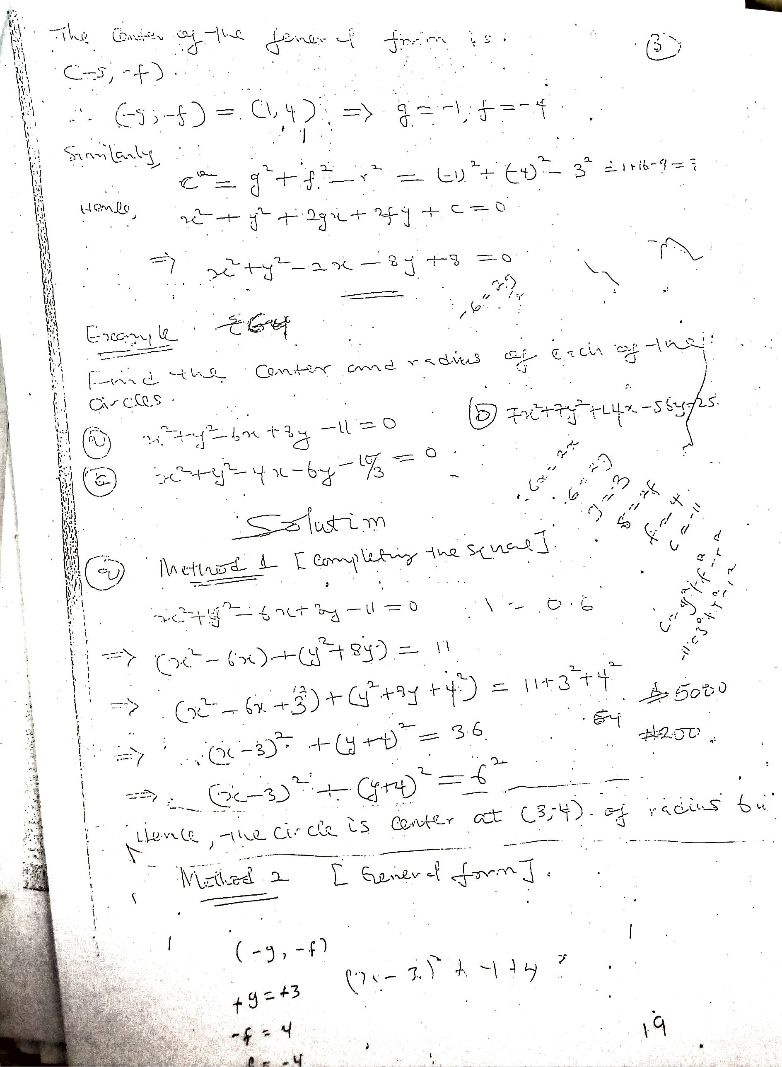 The Center of the general form is.
③
(-g, -f).
∴ (-g, -f) = (1, 4) ⇒ g = -1, f = -4
Similarly
c = g² + f² - r² = (-1)² + (-4)² - 3² = 1+16-9 = 
Hence, x² + y² + 2gx + 2fy + c = 0
⇒ x² + y² - 2x - 8y + 8 = 0
Example
Find the center and radius of each of the
circles.
(a) x² + y² - 6x + 8y - 11 = 0 (b) 7x² + 7y² + 14x - 56y - 25
(c) x² + y² - 4x - 6y - 10/3 = 0
Solution
(a) Method 1 [Completing the square].
x² + y² - 6x + 8y - 11 = 0
⇒ (x² - 6x) + (y² + 8y) = 11
⇒ (x² - 6x + 3²) + (y² + 8y + 4²) = 11 + 3² + 4²
5000
⇒ (x - 3)² + (y + 4)² = 36
#200.
⇒ (x - 3)² + (y + 4)² = 6²
Hence, the circle is center at (3, -4) of radius 6u
Method 2 [General form].
(-g, -f)
(x - 3)² + y + 4
+g = +3
-f = 4
f = -4
19